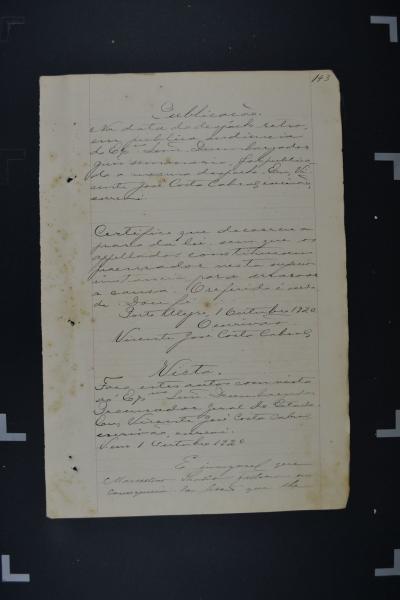 143
Publicação.
Na data do despacho retro,
em publica audiencia
do Exmo Snr. Desembargador
foi publica
do o mesmo despacho. Eu, Vi
cente José Costa Cabral, escrivão,
escrevi
Certifico que decorreu o
praso da lei, sem que os
appellados constituissem
procurador nesta superior
instancia para arrazoar
a causa. O referido é verda
de. Dou fé.
Porto Alegre, 1 Outubro 1920
O escrivão
Vicente José Costa Cabral
Vista.
Faço estes autos com vista
ao Exmo Snr. Desembargador
Procurador Geral do Estado.
Eu, Vicente José Costa Cabral
escrivão, escrevi.
Em 1 Outubro 1920
É innegavel que
Marcellino
consequencia das lesões que lhe